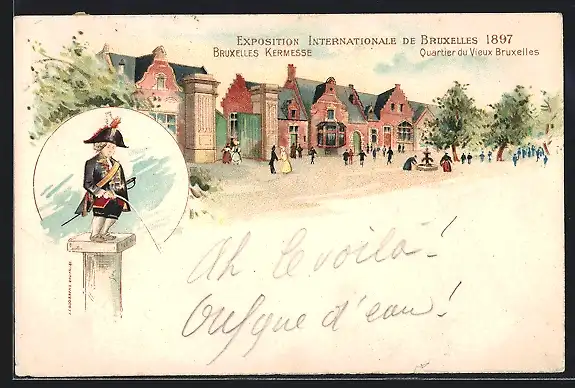 Exposition Internationale de Bruxelles 1897
Bruxelles Kermesse
Quartier du Vieux Bruxelles
Ah. le voilà!
Ousque d'eau!